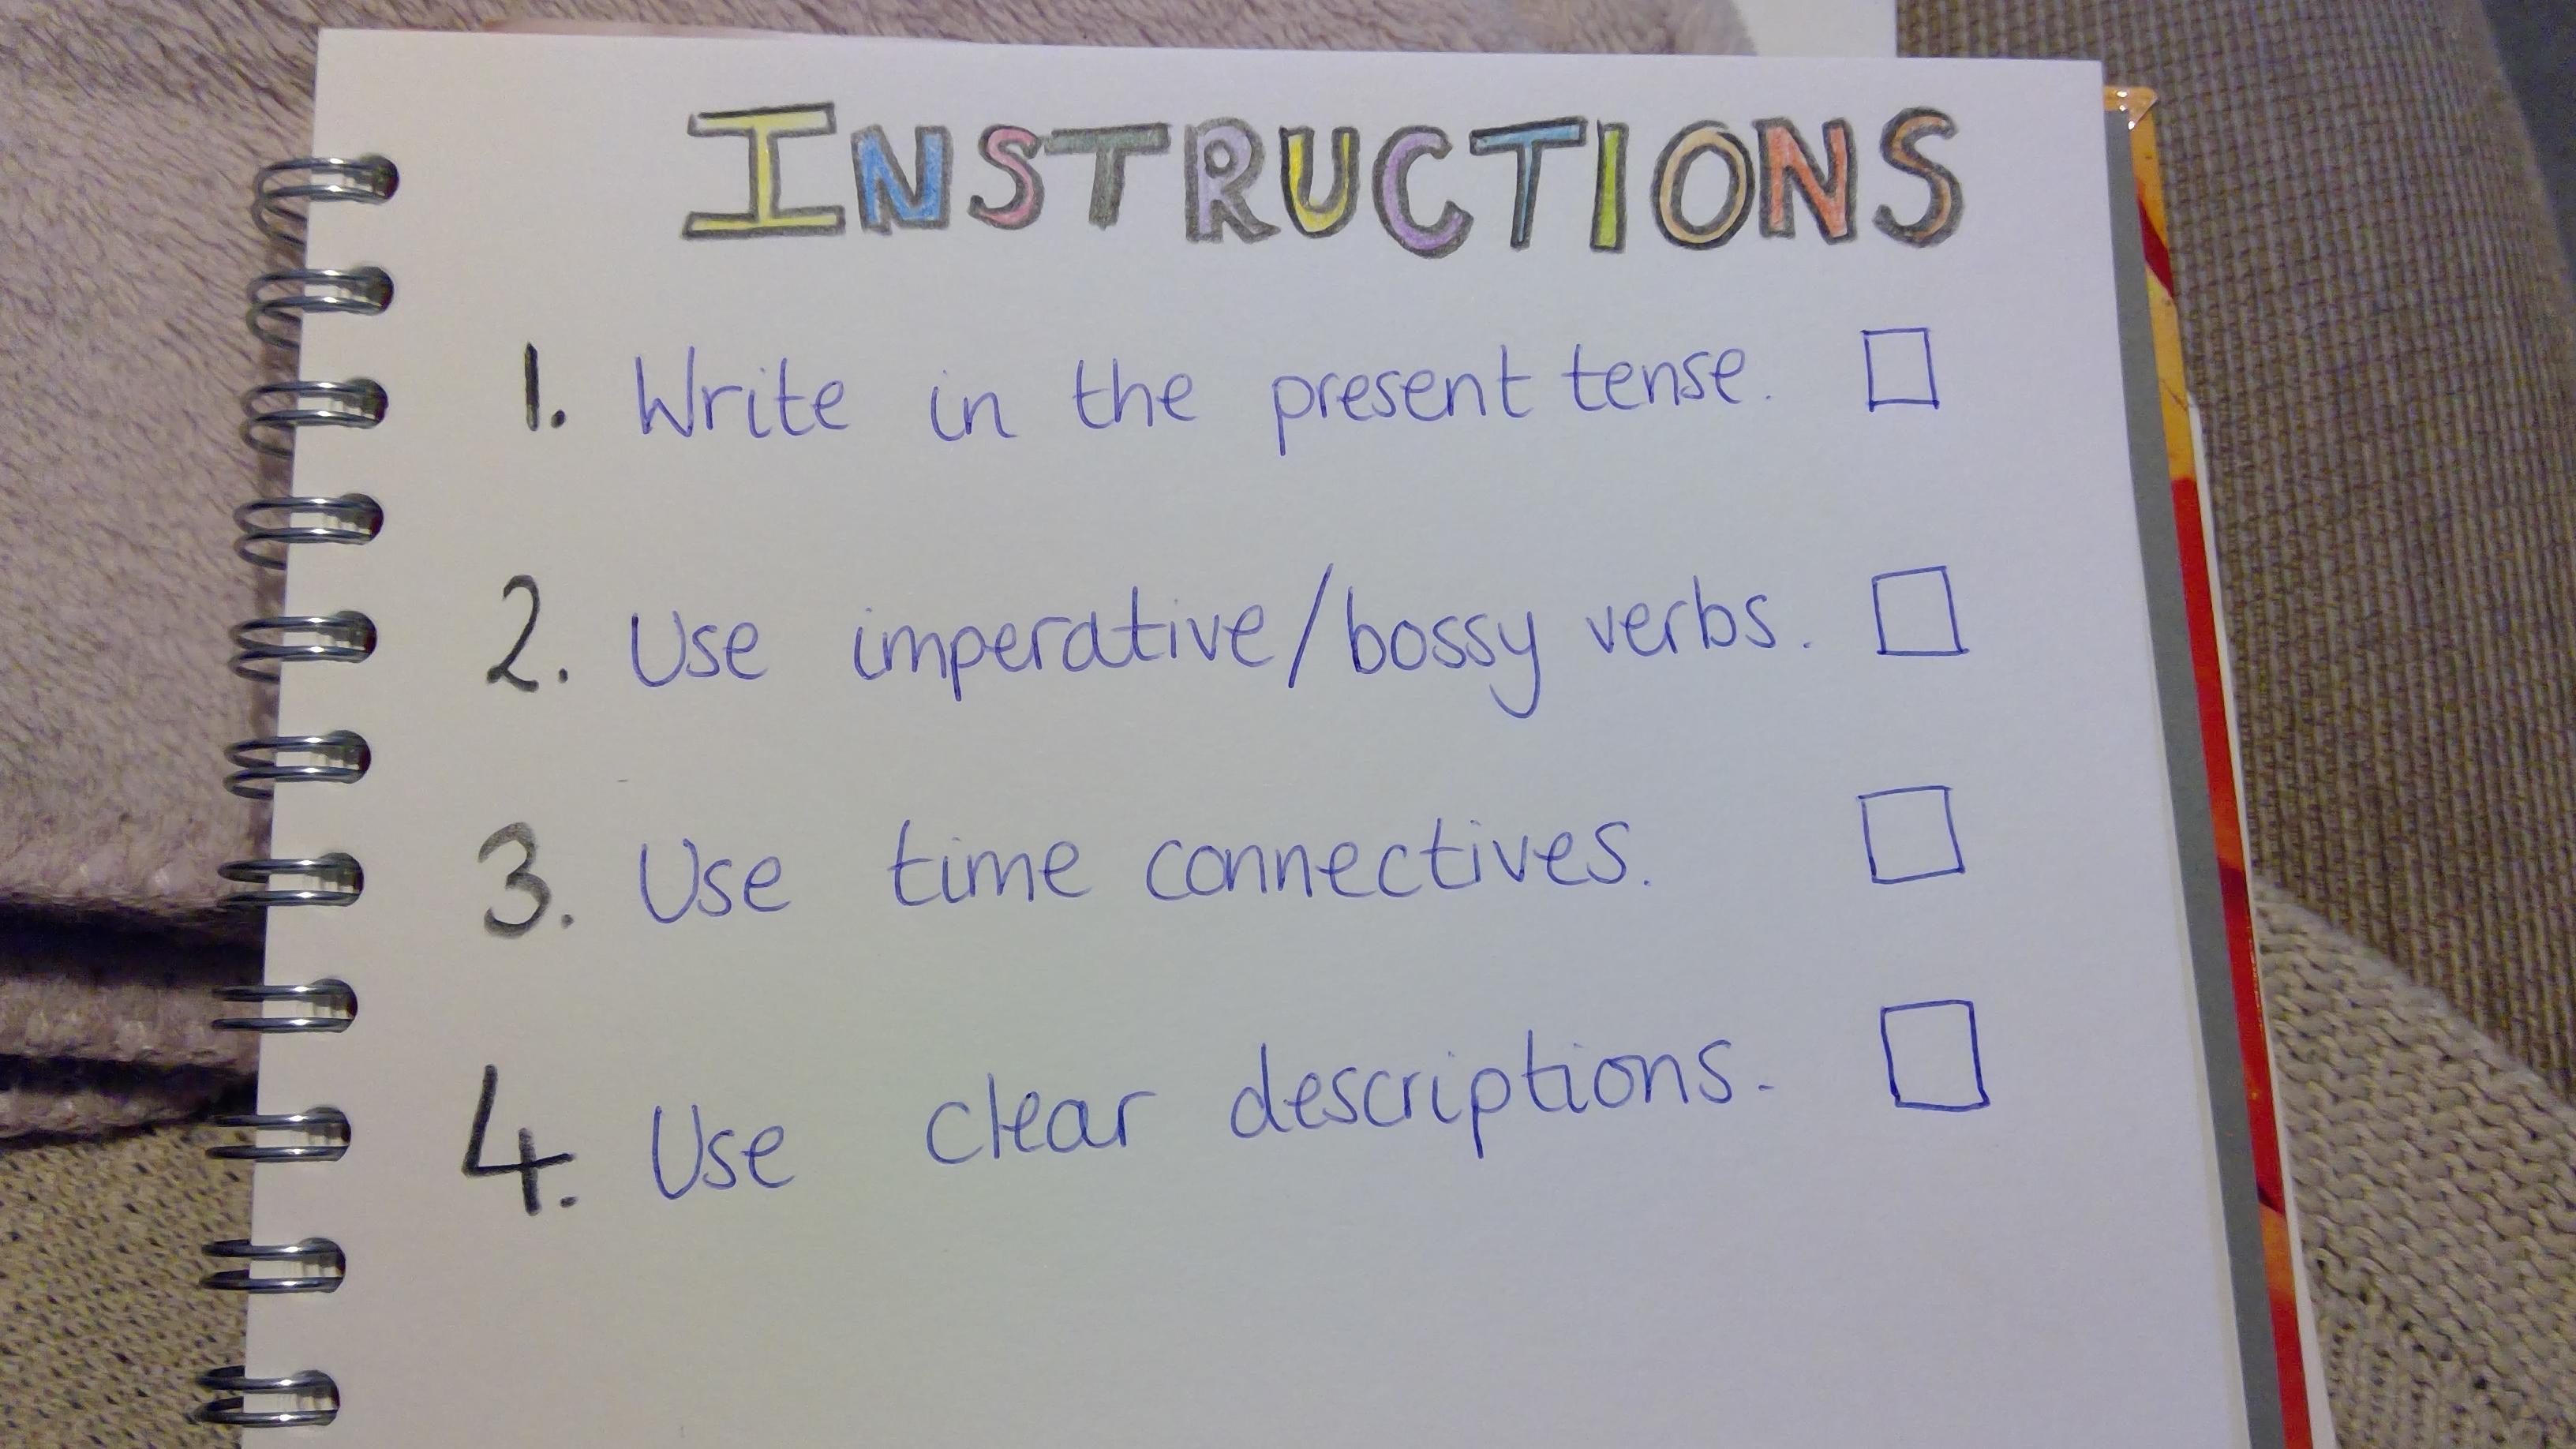 INSTRUCTIONS
1. Write in the present tense.
2. Use imperative/bossy verbs.
3. Use time connectives.
4. Use clear descriptions.